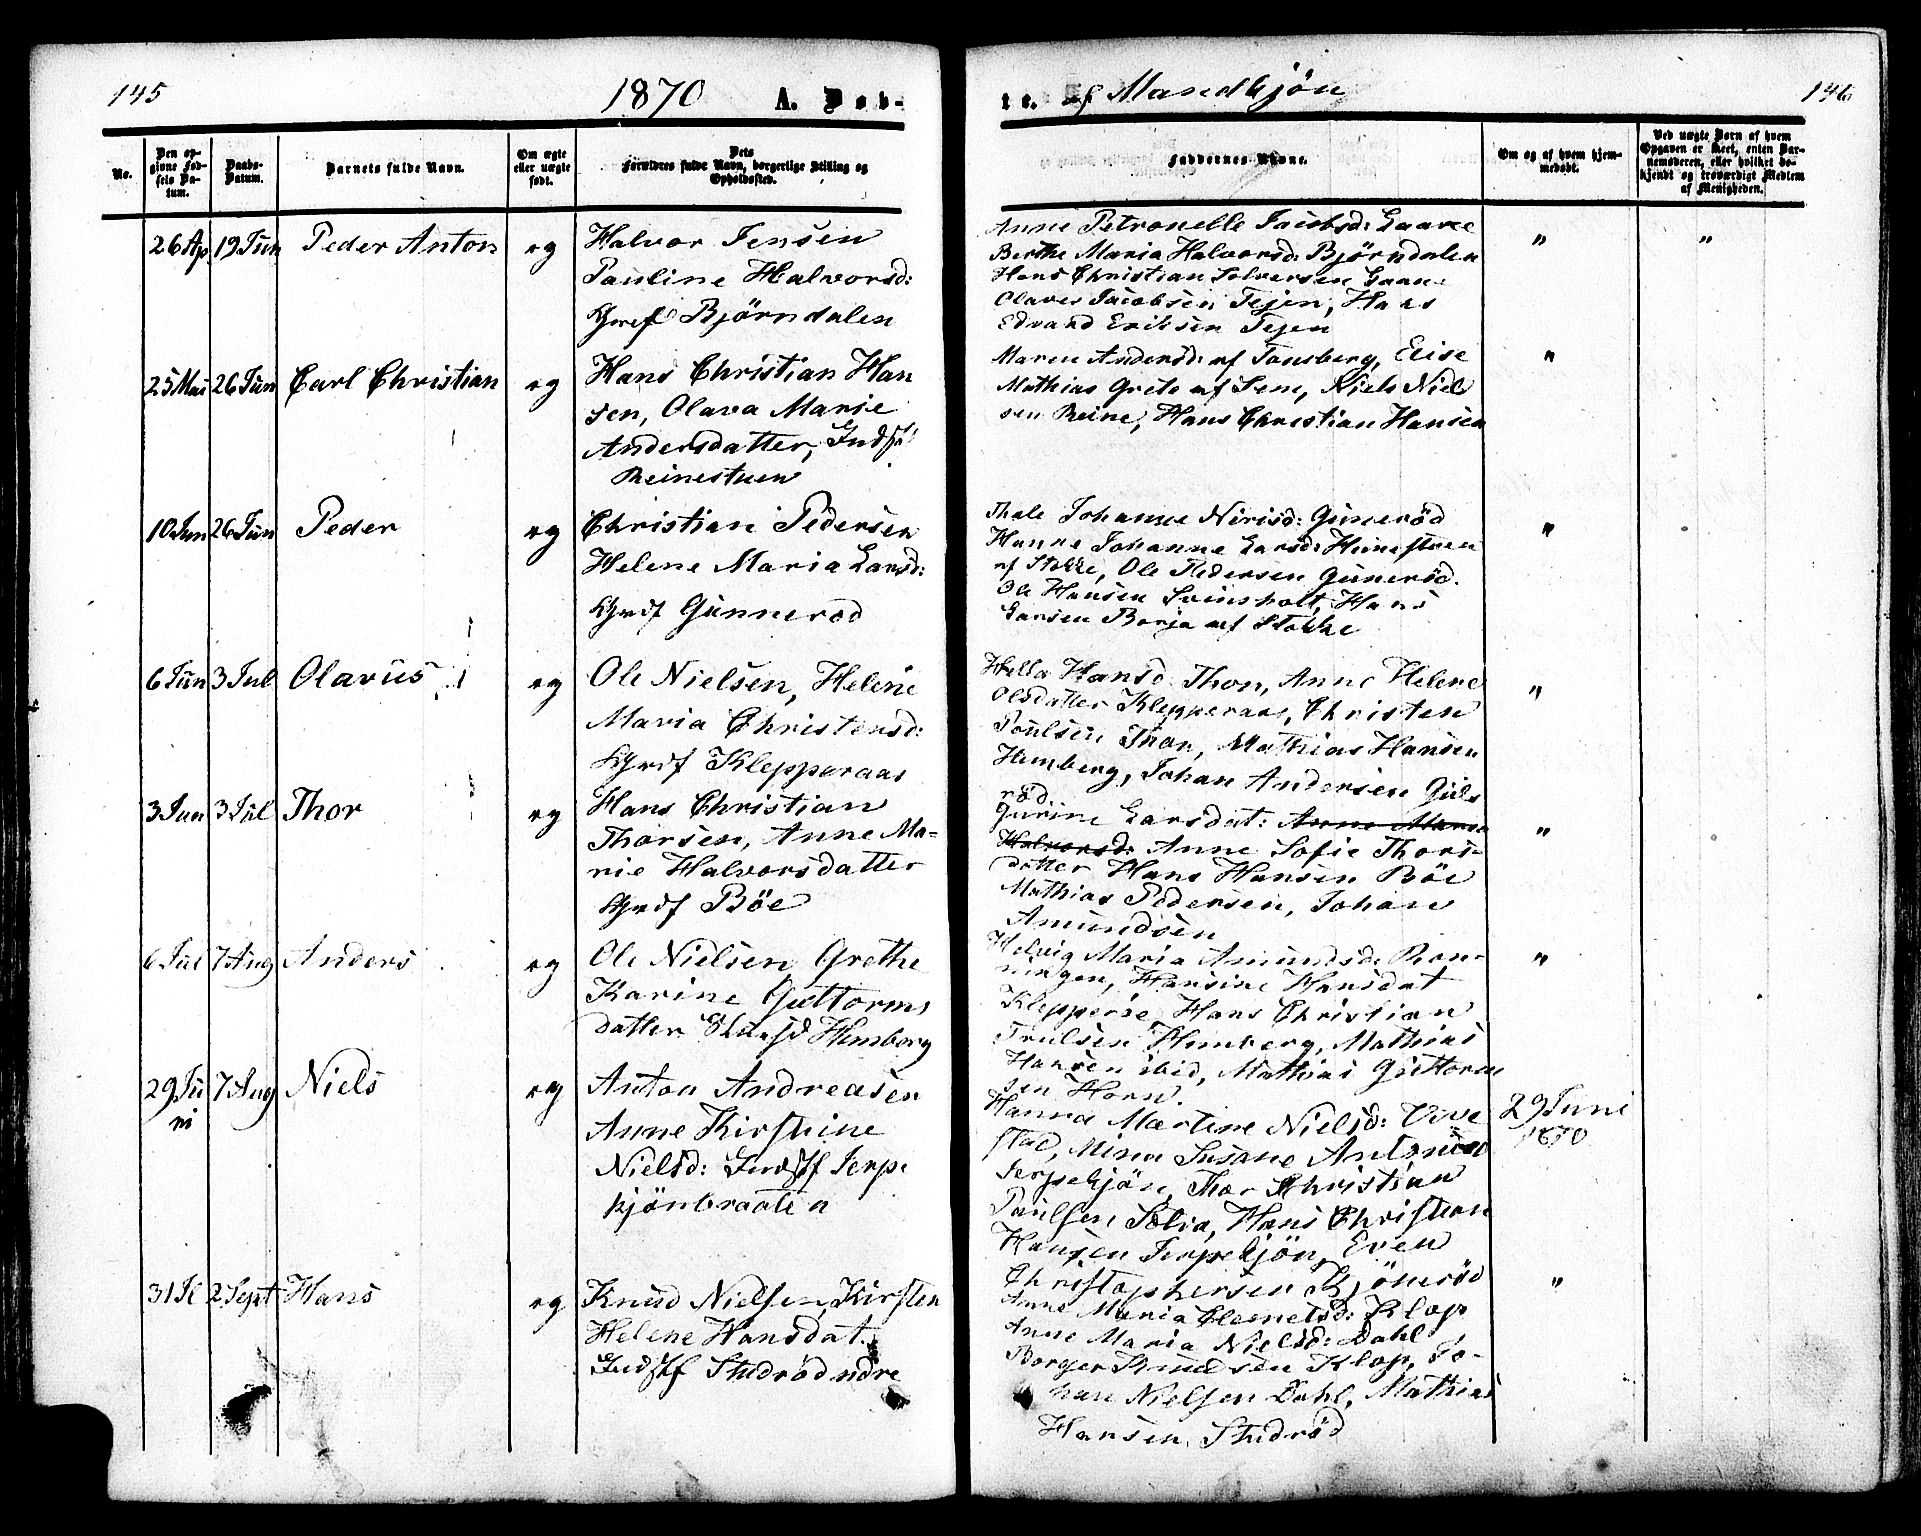 145
1870
A. Døb-
No.
Den op-
givne Fød-
sels Da-
tum.
Daabs-
Datum.
Barnets fulde Navn.
Om ægte
eller uægte
født.
Dets
Forældres fulde Navn, borgerlige Stilling og
Opholdssted.
26 Ap 19 Jun Peder Anton eg
Halvor Jensen
Pauline Halvorsd:
Bjørndalen
25 Mai 26 Jun Carl Christian eg
Hans Christian Han
sen, Olava Marie
Andersdatter, Indst
Reinestuen
10 Jun 26 Jun Peder eg
Christian Pedersen
Helene Maria Larsd:
Gunnerød
6 Jun 3 Jul Olavus eg
Ole Nielsen, Helene
Maria Christensd:
Klepperaas
3 Jun 3 Jul Thor eg
Hans Christian
Thorsen, Anne Ma-
rie Halvorsdatter
Böe
6 Jul 7 Aug Anders eg
Ole Nielsen Grethe
Karine Guttorms
datter Hemberg
29 Ju
ni
7 Aug Niels eg
Anton Andreasen
Anne Kirstine
Nielsd: Indstf Jerpe
kjönbraaten
31 Jl 2 Sept Hans eg
Knud Nielsen, Kirsten
Helene Hansdat.
Indstf Studrød ndre
te. af Mandkjön
146
Faddernes Navne.
Om og af hvem hjem-
medøbt.
Ved uægte Børn af hvem
Opgaven er skeet, enten Bar-
nemoderen, eller hvilket be-
kjendt og troværdigt Medlem
af Menigheden.
Anne Petronelle Jacobsd: Gaare
Berthe Maria Halvorsd: Bjørndalen
Hans Christian Solversen Gaar
Olaves Jacobsen Tejen, Hans
Edvard Eriksen Tejen
" "
Maren Andersd: af Tønsberg, Elise
Mathias Grete af Sem, Niels Niel
sen Reine, Hans Christian Hansen
"
Thale Johanne Nirisd: Gunerød
Hanne Johanne Larsd: Heinestuen
af Stokke, Ole Pedersen Gunerød.
Ole Hansen Svinsholt, Hans
Larsen Borja af Stokke
"
Hella Hansd. Thon, Anne Helene
Olsdatter Klepperaas, Christen
Poulsen Thon, Mathias Hansen
Hemberg, Johan Andersen Guls
rød
"
Gurine Larsdat: Anne Maria
Halvorsd: Anne Sofie Thors-
datter Hans Hansen Böe
Mathias Pedersen, Johan
Amundsen
"
Helvig Maria Amundsd: Røn-
ningen, Hansine Hansdat
Klepperøe, Hans Christian
Trulsen Hemberg, Mathias
Hansen ibid, Mathias Guttorm
sen Horn.
"
Hanna Martine Nielsd: Vive
stad, Mina Susane Antonsen
Jerpekjön, Thor Christian
Paulsen Solia, Hans Christian
Hansen Jerpekjön, Even
Christophersen Kjönerød
29 Juni
1870
Anne Maria Clemetsd: Klop
Anne Maria Nielsd: Dahl
Borger Knudsen Klop, Jo-
han Nielsen Dahl, Mathias
Hansen Studrød
"